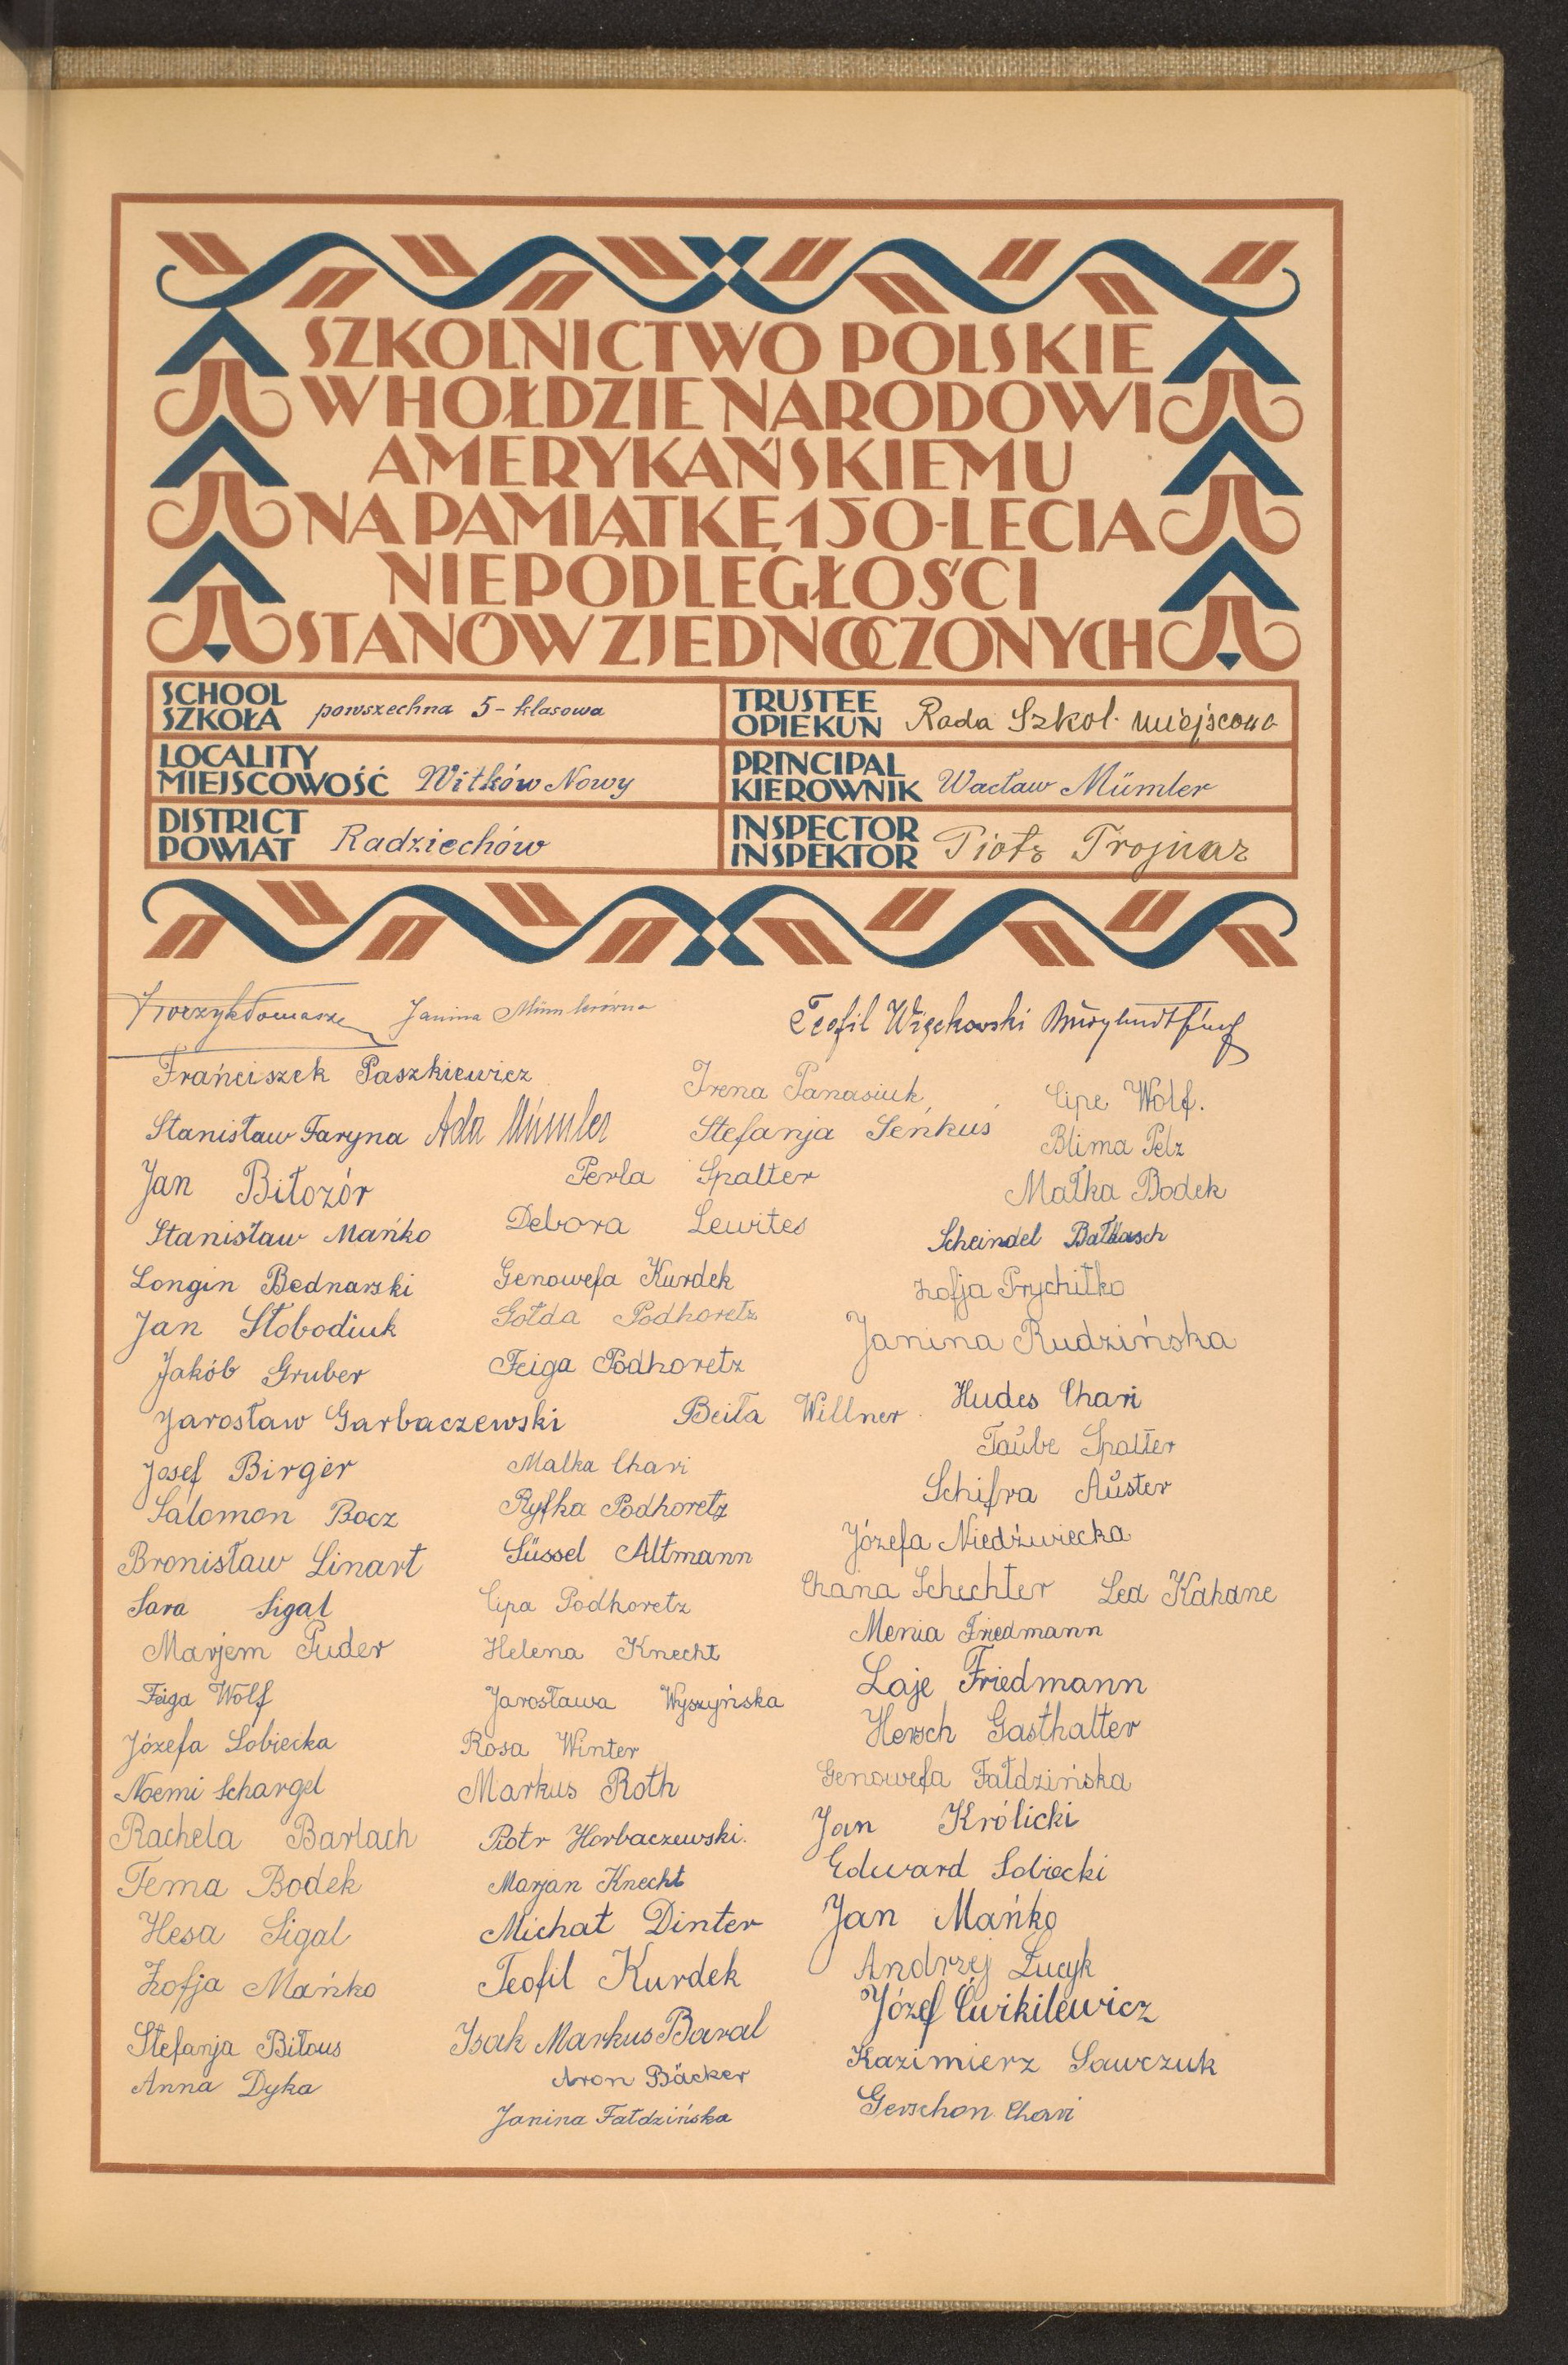 SZKOLNICTWO POLSKIE
W HOŁDZIE NARODOWI
AMERYKAŃSKIEMU
NA PAMIĄTKĘ 150-LECIA
NIEPODLEGŁOŚCI
STANÓW ZJEDNOCZONYCH
SCHOOL
SZKOŁA powszechna 5-klasowa
TRUSTEE
OPIEKUN Rada Szkol. miejscowa
LOCALITY
MIEJSCOWOŚĆ Witków Nowy
PRINCIPAL
KIEROWNIK Wacław Mümler
DISTRICT
POWIAT Radziechów
INSPECTOR
INSPEKTOR Piotr Trojnar
Janina Mümlerówna
Teofil Więckowski
Franciszek Paszkiewicz
Stanisław Faryna Ada Mümler
Jan Biłozór
Stanisław Mańko
Longin Bednarski
Jan Słobodiuk
Jakób Gruber
Jarosław Garbaczewski
Josef Birger
Salomon Bocz
Bronisław Linart
Sara Sigal
Marjem Puder
Feiga Wolf
Józefa Sobiecka
Noemi Schargel
Rachela Barlach
Tema Bodek
Hesa Sigal
Zofja Mańko
Stefanja Biłous
Anna Dyka
Irena Panasiuk
Stefanja Seńkuś
Perla Spalter
Debora Lewites
Genowefa Kurdek
Gołda Podhoretz
Feiga Podhoretz
Beiła Willner
Malka Chari
Ryfka Podhoretz
Süssel Altmann
Cipa Podhoretz
Helena Knecht
Jarosława Wyszyńska
Rosa Winter
Markus Roth
Piotr Horbaczewski.
Marjan Knecht
Michał Dinter
Teofil Kurdek
Isak Markus Baral
Aron Bäcker
Janina Fałdzińska
Cipe Wolf.
Blima Pelz
Małka Bodek
Scheindel Bałkasch
Zofja Prychitko
Janina Rudzińska
Hudes Chari
Taube Spalter
Schifra Auster
Józefa Niedźwiecka
Chana Schechter Lea Kahane
Menia Friedmann
Laje Friedmann
Hersch Gasthalter
Genowefa Fałdzińska
Jan Królicki
Edward Sobiecki
Jan Mańko
Andrzej Łucyk
Józef Ćwikilewicz
Kazimierz Sawczuk
Gerschon Chari